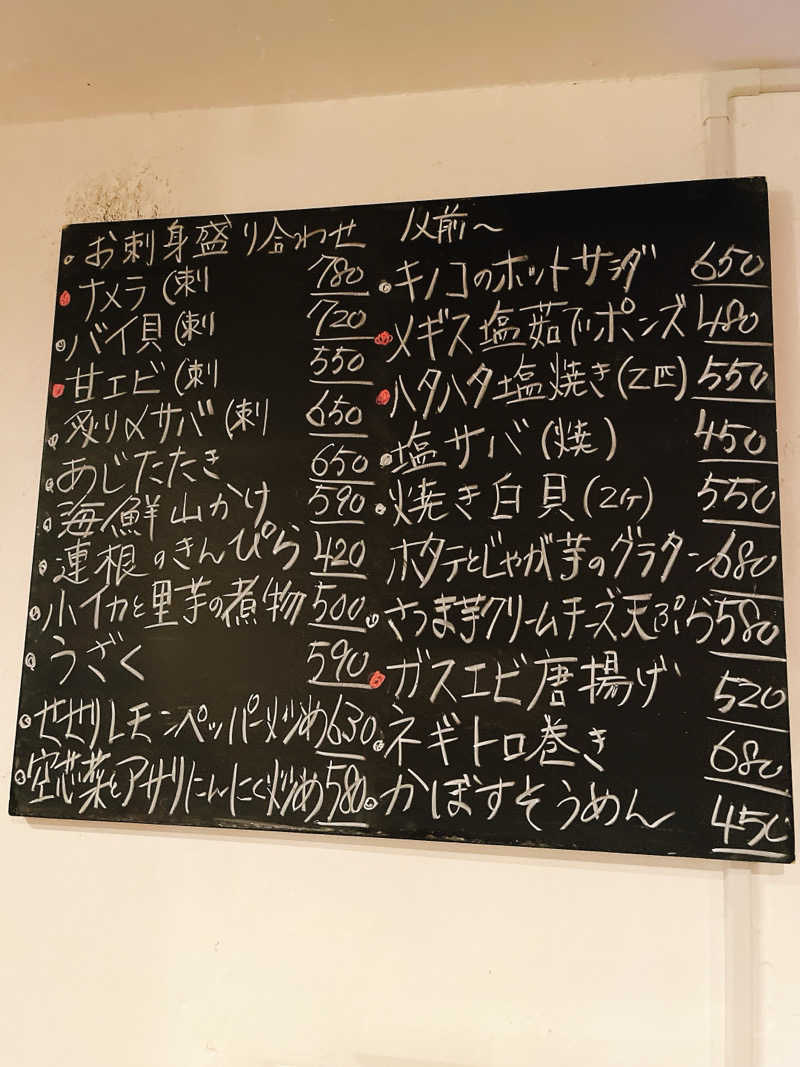 お刺身盛り合わせ 1人前〜
ナメラ(刺 780
バイ貝(刺 720
甘エビ(刺 550
炙り〆サバ(刺 650
あじたたき 650
海鮮山かけ 590
連根のきんぴら 420
小イカと里芋の煮物 500
うざく 590
せせりレモンペッパー炒め 630
空芯菜とアサリにんにく炒め 580
キノコのホットサラダ 650
メギス塩茹でポンズ 480
ハタハタ塩焼き(2匹) 550
塩サバ(焼) 450
焼き白貝(2ヶ) 550
ホタテとじゃが芋のグラタン 680
さつま芋クリームチーズ天ぷら 580
ガスエビ唐揚げ 520
ネギトロ巻き 680
かぼすそうめん 450